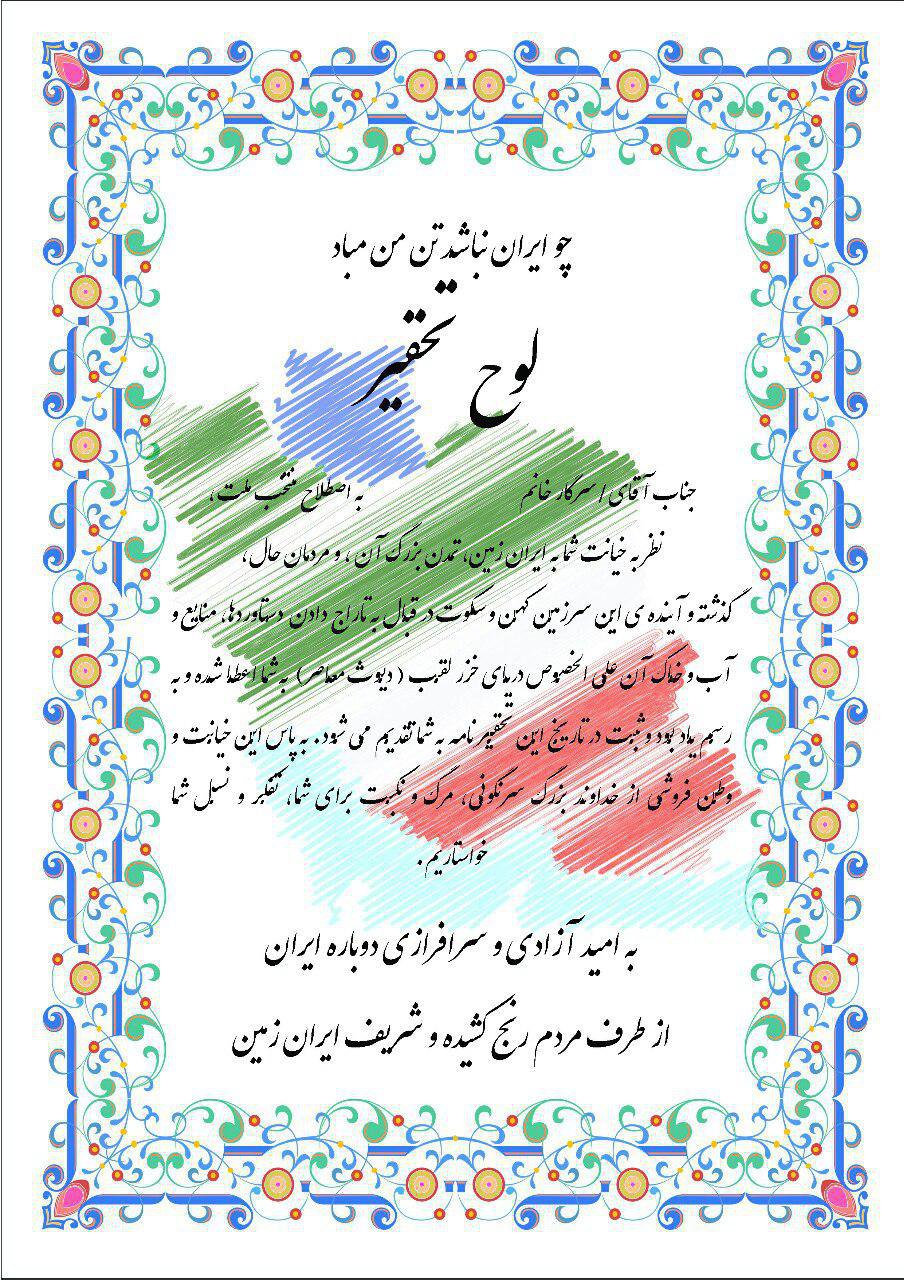 چو ایران نباشد تن من مباد
لوح تحقیر
جناب آقای / سرکار خانم به اصطلاح منتخب ملت،
نظر به خیانت شما به ایران زمین، تمدن بزرگ آن، و مردمان حال،
گذشته و آینده ی این سرزمین کهن و سکوت در قبال به تاراج دادن دستاوردها، منابع و
آب و خاک آن علی الخصوص دریای خزر لقب ( دیوث معاصر ) به شما اعطا شده و به
رسم یاد بود و ثبت در تاریخ این تحقیر نامه به شما تقدیم می شود. به پاس این خیانت و
وطن فروشی از خداوند بزرگ سرنگونی، مرگ و نکبت برای شما، تفکر و نسل شما
خواستاریم.
به امید آزادی و سرافرازی دوباره ایران
از طرف مردم رنج کشیده و شریف ایران زمین